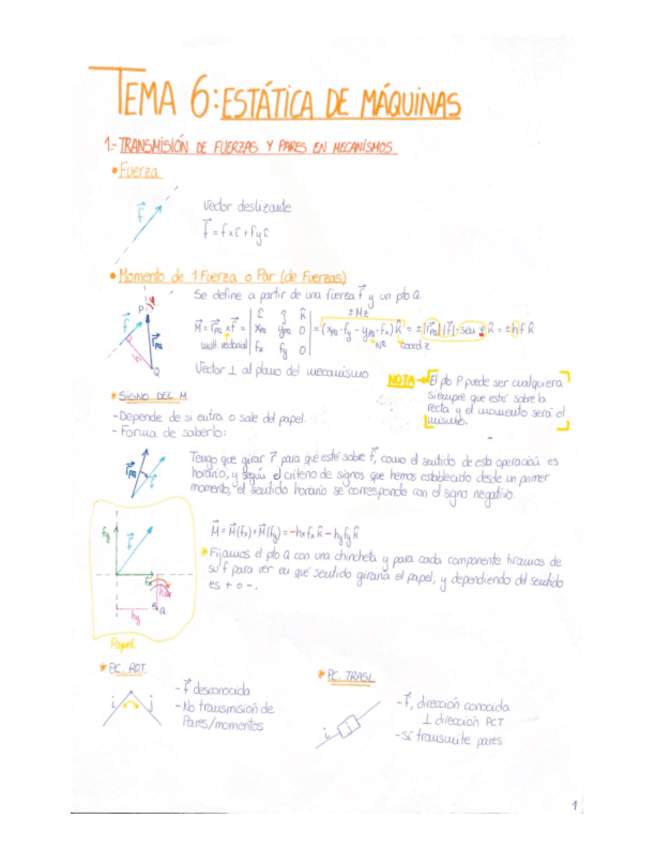 TEMA 6: ESTÁTICA DE MÁQUINAS
1.- TRANSMISIÓN DE FUERZAS Y PARES EN MECANISMOS
• Fuerza
f
Vector deslizante
f = fx î + fy ĵ
• Momento de 1 Fuerza o Par (de Fuerzas)
Se define a partir de una fuerza f y un pto Q.
M = r_PQ x f = | î ĵ k̂ | x_PQ y_PQ 0 | fx fy 0 | = (x_PQ·fy - y_PQ·fx) k̂ = ± |r_PQ|·|f|·sen φ k̂ = ± h f k̂
± Mz
mult. vectorial
coord. z
Vector ⊥ al plano del mecanismo
NOTA → El pto P puede ser cualquiera
siempre que esté sobre la
recta y el momento será el
mismo.
* SIGNO DEL M
- Depende de si entra o sale del papel.
- Forma de saberlo:
Tengo que girar r para que esté sobre f, como el sentido de esta operación es
horario, y según el criterio de signos que hemos establecido desde un primer
momento, el sentido horario se corresponde con el signo negativo.
M = M(fx) + M(fy) = -hx fx k̂ - hy fy k̂
* Fijamos el pto Q con una chincheta y para cada componente tiramos de
su f para ver en qué sentido giraría el papel, y dependiendo del sentido
es + o -.
fy
f
fx
hx
Q
hy
Papel
* PC. ROT.
i j
- f desconocida
- No transmisión de
Pares/momentos
* PC. TRASL
i j
- f, dirección conocida
⊥ dirección PCT
- Sí transmite pares
1